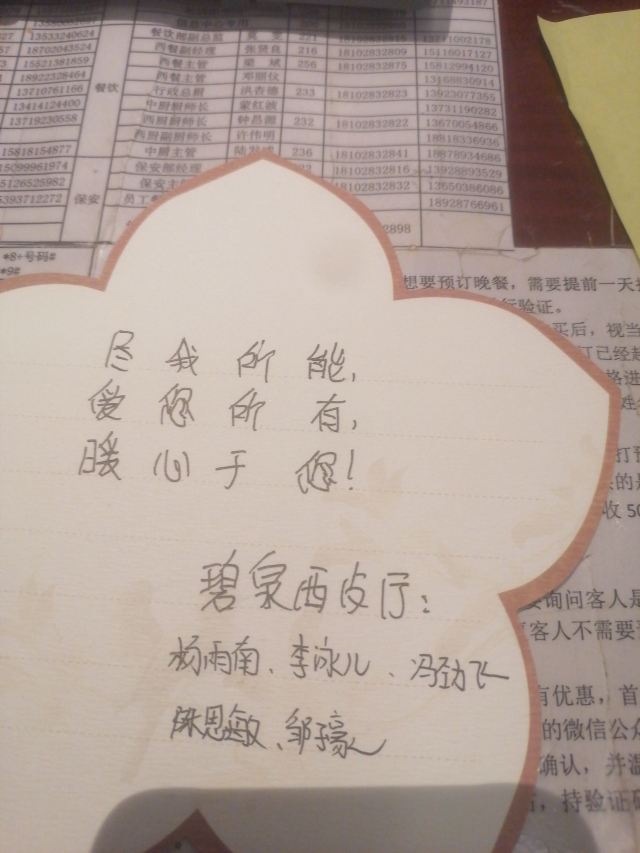 餐饮部副总监 221
西餐副经理 张贤良 216 18102832809 15116017127
西餐主管 梁斌 256 18102832875 15812994120
18922328464 西餐主管 邓丽仪 13168830914
13710761166 餐饮 行政总厨 洪杏德 233 18102832823 13923077355
13414124400 中厨厨师长 蒙红波 13731190282
13719230558 西厨厨师长 钟昌源 232 18102832822 13670054866
西厨副厨师长 许伟明 18818336936
15818154877 中厨主管 236 18102832841 18878934686
15099961974 保安部经理 18102832816 13928893529
15126525982 保安 保安主 18102832832 13650386086
员工 18928766961
2898
*8+号码#
*9#
想要预订晚餐，需要提前一天
行验证。
买后，视当
订已经起
格进
打预
的是
收 50
要询问客人是
客人不需要
有优惠，首
的微信公众
确认，并温
，持验证码
尽我所能,
爱您所有,
暖心于您!
碧泉西皮厅:
杨雨南、李泳儿、冯劲飞
陈思敏、邹子豪